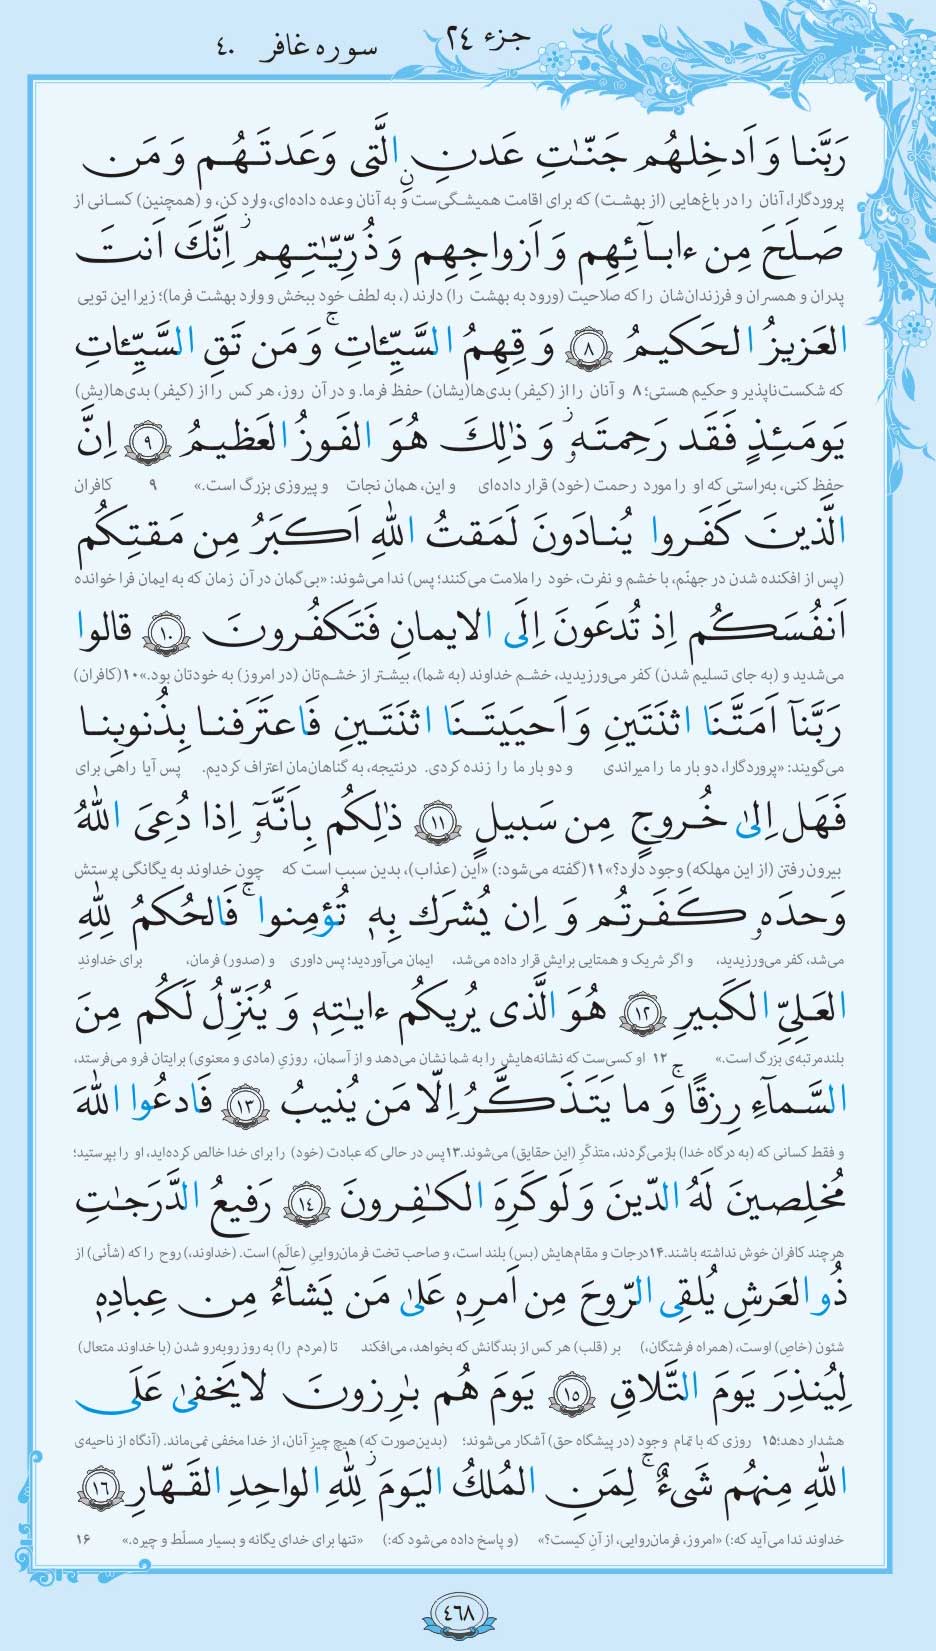 جزء ٢٤ سوره غافر ٤٠
رَبَّنا وَ اَدخِلهُم جَنّاتِ عَدنٍ الَّتی وَعَدتَهُم وَ مَن
پروردگارا، آنان را در باغ‌هایی (از بهشت) که برای اقامت همیشگی‌ست و به آنان وعده داده‌ای، وارد کن، و (همچنین) کسانی از
صَلَحَ مِن ءابآئِهِم وَ اَزواجِهِم وَ ذُرِّیّٰتِهِم ۚ اِنَّکَ اَنتَ
پدران و همسران و فرزندان‌شان را که صلاحیت (ورود به بهشت را) دارند (، به لطف خود ببخش و وارد بهشت فرما)؛ زیرا این تویی
العَزیزُ الحَکیمُ ﴿٨﴾ وَ قِهِمُ السَّیِّئاتِ ۚ وَ مَن تَقِ السَّیِّئاتِ
که شکست‌ناپذیر و حکیم هستی؛ ٨ و آنان را از (کیفر) بدی‌ها(یشان) حفظ فرما. و در آن روز، هر کس را از (کیفر) بدی‌ها(یش)
یَومَئِذٍ فَقَد رَحِمتَهٗ ۚ وَ ذٰلِکَ هُوَ الفَوزُ العَظیمُ ﴿٩﴾ اِنَّ
حفظ کنی، به‌راستی که او را مورد رحمت (خود) قرار داده‌ای و این، همان نجات و پیروزی بزرگ است.» ٩ کافران
الَّذینَ کَفَروا یُنادَونَ لَمَقتُ اللهِ اَکبَرُ مِن مَقتِکُم
(پس از افکنده شدن در جهنّم، با خشم و نفرت، خود را ملامت می‌کنند؛ پس) ندا می‌شوند: «بی‌گمان در آن زمان که به ایمان فرا خوانده
اَنفُسَکُم اِذ تُدعَونَ اِلَی الایمانِ فَتَکفُرونَ ﴿١٠﴾ قالوا
می‌شدید و (به جای تسلیم شدن) کفر می‌ورزیدید، خشم خداوند (به شما)، بیشتر از خشم‌تان (در امروز) به خودتان بود.»١٠(کافران)
رَبَّنآ اَمَتَّنَا اثنَتَینِ وَ اَحیَیتَنَا اثنَتَینِ فَاعتَرَفنا بِذُنوبِنا
می‌گویند: «پروردگارا، دو بار ما را میراندی و دو بار ما را زنده کردی. درنتیجه، به گناهان‌مان اعتراف کردیم. پس آیا راهی برای
فَهَل اِلیٰ خُروجٍ مِن سَبیلٍ ﴿١١﴾ ذٰلِکُم بِاَنَّهٗٓ اِذا دُعِیَ اللهُ
بیرون رفتن (از این مهلکه) وجود دارد؟»١١(گفته می‌شود:) «این (عذاب)، بدین سبب است که چون خداوند به یگانگی پرستش
وَحدَهٗ کَفَرتُم وَ اِن یُشرَک بِهٖ تُؤمِنوا ۚ فَالحُکمُ لِلّٰهِ
می‌شد، کفر می‌ورزیدید، و اگر شریک و همتایی برایش قرار داده می‌شد، ایمان می‌آوردید؛ پس داوری و (صدور) فرمان، برای خداوندِ
العَلِیِّ الکَبیرِ ﴿١٢﴾ هُوَ الَّذی یُریکُم ءایٰتِهٖ وَ یُنَزِّلُ لَکُم مِنَ
بلندمرتبه‌ی بزرگ است.» ١٢ او کسی‌ست که نشانه‌هایش را به شما نشان می‌دهد و از آسمان، روزیِ (مادی و معنوی) برایتان فرو می‌فرستد،
السَّمآءِ رِزقًا ۚ وَ ما یَتَذَکَّرُ اِلّا مَن یُنیبُ ﴿١٣﴾ فَادعُوا اللهَ
و فقط کسانی که (به درگاه خدا) بازمی‌گردند، متذکّرِ (این حقایق) می‌شوند.١٣پس در حالی که عبادت (خود) را برای خدا خالص کرده‌اید، او را بپرستید؛
مُخلِصینَ لَهُ الدّینَ وَ لَو کَرِهَ الکٰفِرونَ ﴿١٤﴾ رَفیعُ الدَّرَجٰتِ
هرچند کافران خوش نداشته باشند.١٤درجات و مقام‌هایش (بس) بلند است، و صاحب تخت فرمان‌رواییِ (عالَم) است. (خداوند،) روح را که (شأنی) از
ذُو العَرشِ یُلقِی الرّوحَ مِن اَمرِهٖ عَلیٰ مَن یَشآءُ مِن عِبادِهٖ
شئون (خاصِ) اوست، (همراه فرشتگان،) بر (قلب) هر کس از بندگانش که بخواهد، می‌افکند تا (مردم را) به روز روبه‌رو شدن (با خداوند متعال)
لِیُنذِرَ یَومَ التَّلاقِ ﴿١٥﴾ یَومَ هُم بٰرِزونَ لا یَخفیٰ عَلَی
هشدار دهد؛١٥ روزی که با تمام وجود (در پیشگاه حق) آشکار می‌شوند؛ (بدین‌صورت که) هیچ چیزِ آنان، از خدا مخفی نمی‌ماند. (آنگاه از ناحیه‌ی
اللهِ مِنهُم شَیءٌ ۚ لِمَنِ المُلکُ الیَومَ ۖ لِلّٰهِ الواحِدِ القَهّارِ ﴿١٦﴾
خداوند ندا می‌آید که:) «امروز، فرمان‌روایی، از آنِ کیست؟» (و پاسخ داده می‌شود که:) «تنها برای خدای یگانه و بسیار مسلّط و چیره.» ١٦
٤٦٨